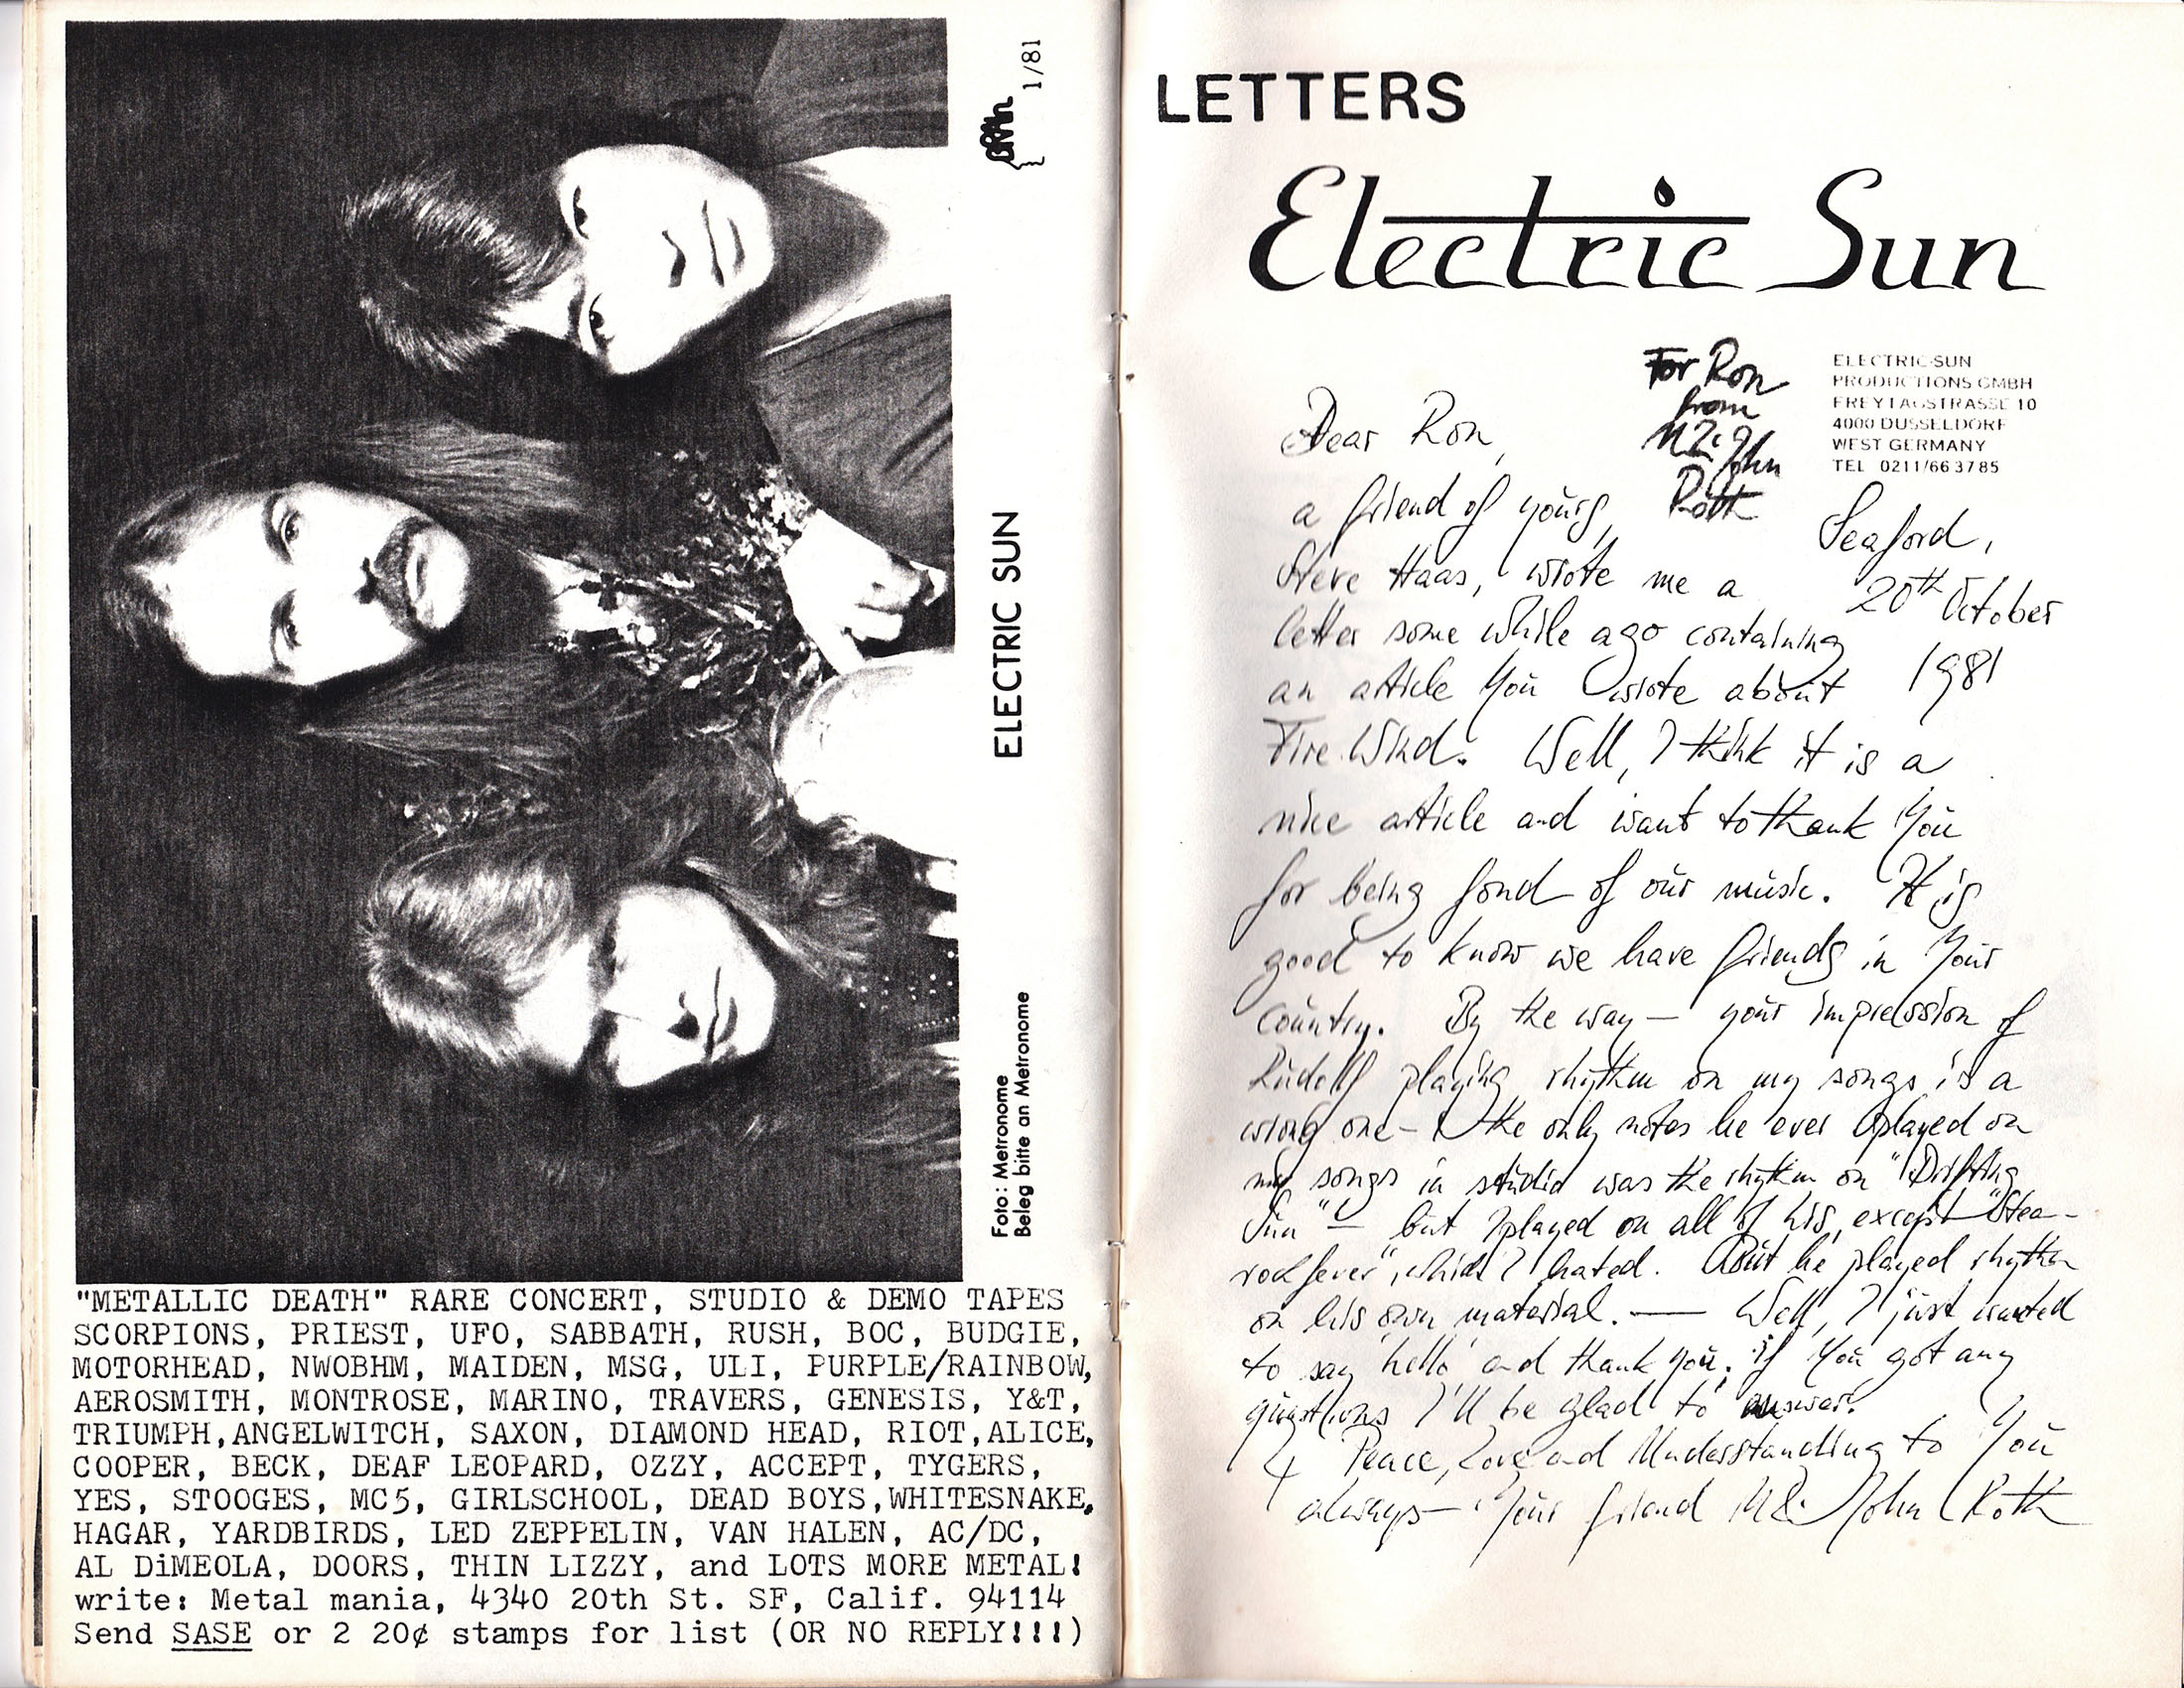 1/81
ELECTRIC SUN
Foto: Metronome
Beleg bitte an Metronome
"METALLIC DEATH" RARE CONCERT, STUDIO & DEMO TAPES
SCORPIONS, PRIEST, UFO, SABBATH, RUSH, BOC, BUDGIE,
MOTORHEAD, NWOBHM, MAIDEN, MSG, ULI, PURPLE/RAINBOW,
AEROSMITH, MONTROSE, MARINO, TRAVERS, GENESIS, Y&T,
TRIUMPH,ANGELWITCH, SAXON, DIAMOND HEAD, RIOT,ALICE,
COOPER, BECK, DEAF LEOPARD, OZZY, ACCEPT, TYGERS,
YES, STOOGES, MC5, GIRLSCHOOL, DEAD BOYS,WHITESNAKE,
HAGAR, YARDBIRDS, LED ZEPPELIN, VAN HALEN, AC/DC,
AL DiMEOLA, DOORS, THIN LIZZY, and LOTS MORE METAL!
write: Metal mania, 4340 20th St. SF, Calif. 94114
Send SASE or 2 20¢ stamps for list (OR NO REPLY!!!)
LETTERS
Electric Sun
For Ron
from
John
Roth
ELECTRIC-SUN
PRODUCTIONS GMBH
FREYTAGSTRASSE 10
4000 DUSSELDORF
WEST GERMANY
TEL 0211/66 37 85
Seaford,
20th October
1981
Dear Ron,
a friend of yours,
Steve Haas, wrote me a
letter some while ago containing
an article You wrote about
Fire Wind. Well, I think it is a
nice article and want to thank You
for being fond of our music. It is
good to know we have friends in Your
Country. By the way — your impression of
Rudolf playing rhythm on my songs is a
wrong one - the only notes he ever played on
my songs in studio was the rhythm on "Drifting
Sun" — but I played on all of his, except "Stea-
rock fever", which I hated. But he played rhythm
on his own material. — Well, I just wanted
to say 'hello' and thank You. If You got any
questions I'll be glad to answer.
Peace, Love and Understanding to You
always — Your friend John Roth